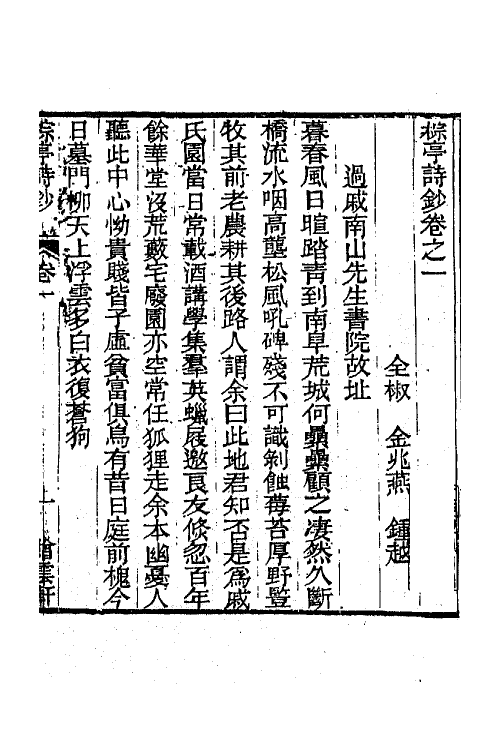 椶亭詩鈔卷之一
全椒 金兆燕 鍾越
過戚南山先生書院故址
暮春風日暄踏青到南皐荒城何纍纍顧之淒然久斷
橋流水咽高壟松風吼碑殘不可識剝蝕莓苔厚野豎
牧其前老農耕其後路人謂余曰此地君知否是爲戚
氏園當日常載酒講學集羣英蠟屐邀良友倐忽百年
餘華堂沒荒藪宅廢園亦空常任狐狸走余本幽憂人
聽此中心怮貴賤皆子虛貧富俱烏有昔日庭前槐今
日墓門柳天上浮雲多白衣復蒼狗
椶亭詩鈔 卷一 一 贈雲軒